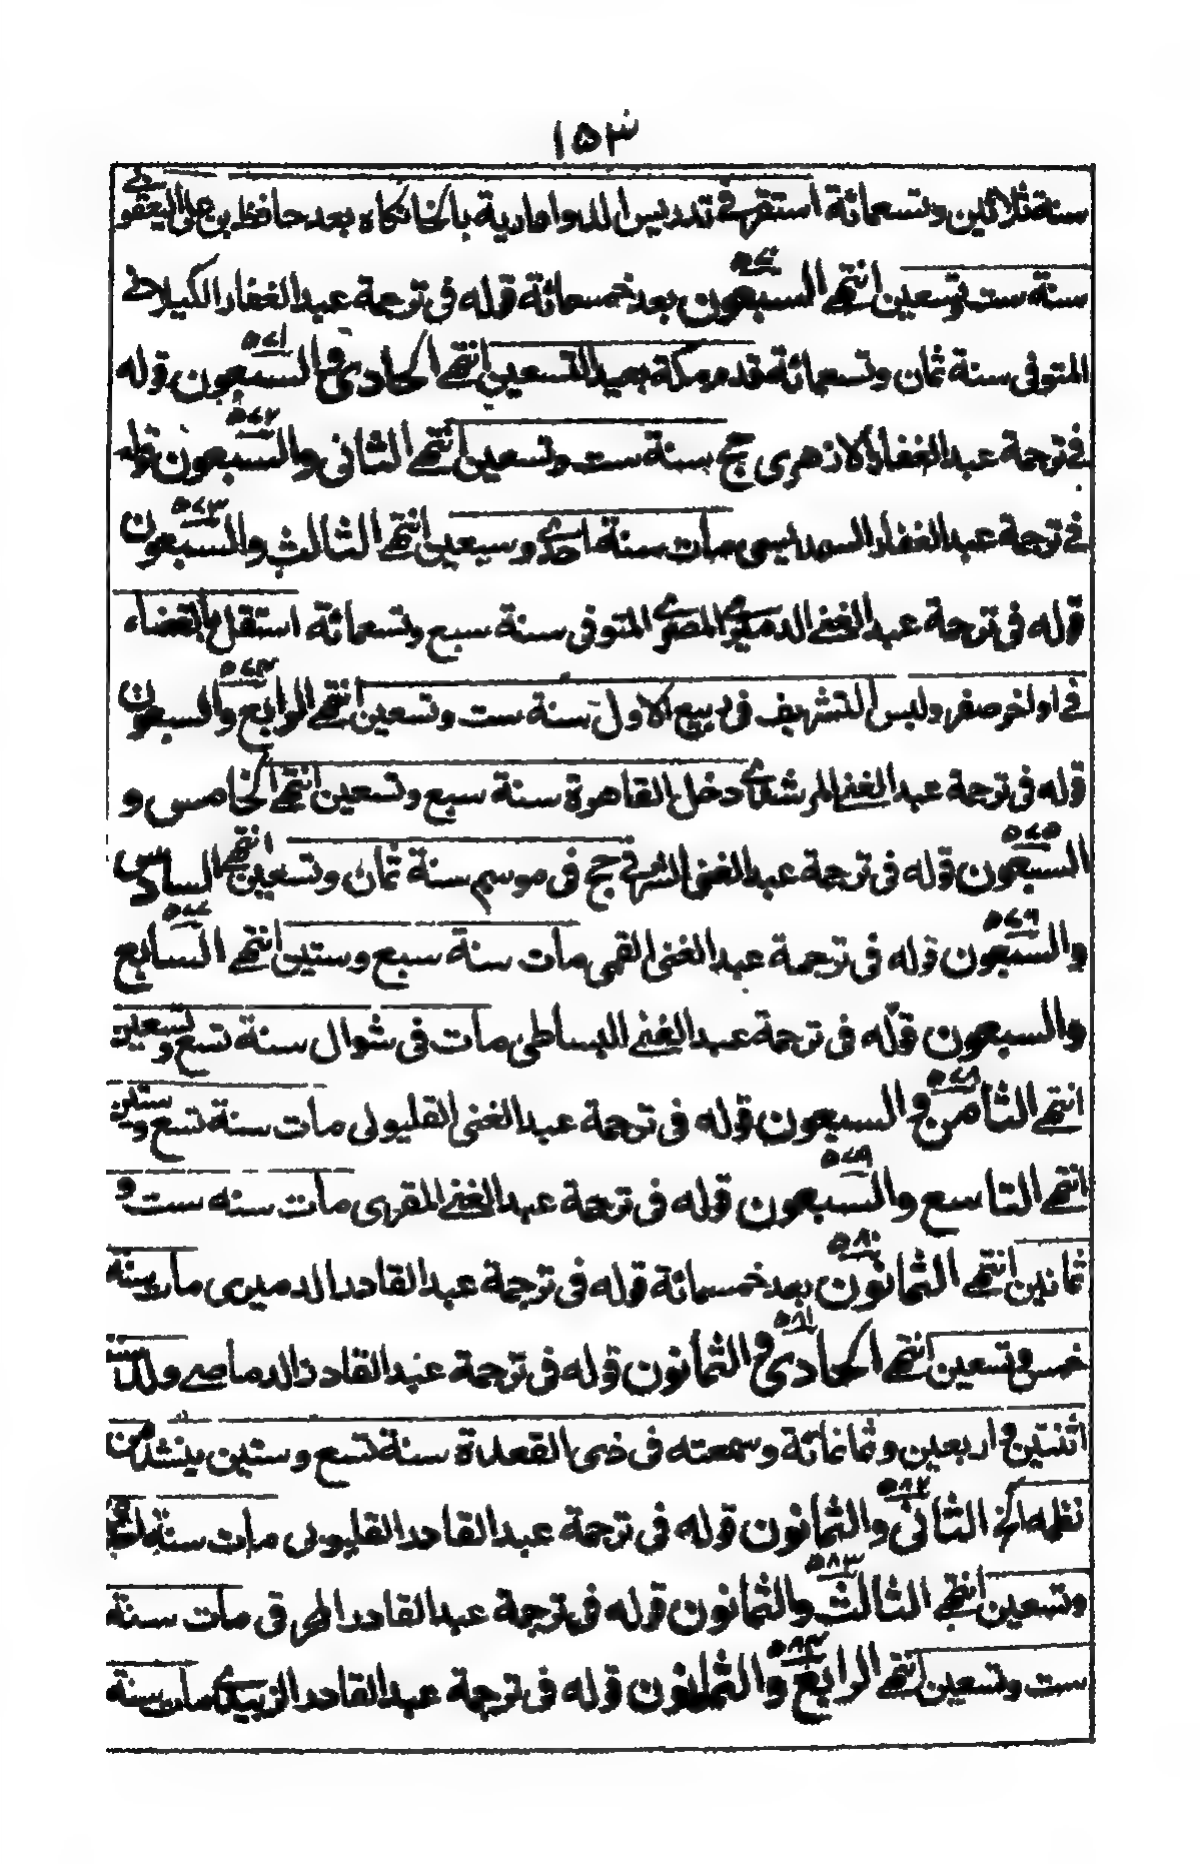 ١٥٣
سنة ثلاثين وتسعمائة استقر في تدريس الدوادارية بالخانكاه بعد حافظ بن علي اليعقوبي
٥٧٠
سنة ست وتسعين انتهى السبعون بعد خمسمائة قوله في ترجمة عبد الغفار الكيلاني
٥٧١
المتوفى سنة ثمان وتسعمائة قدم مكة بعيد التسعين انتهى الحادي والسبعون قوله
٥٧٢
في ترجمة عبد الغفار الازهري حج سنة ست وتسعين انتهى الثاني والسبعون قوله
٥٧٣
في ترجمة عبد الغفار السمديسي مات سنة احدى وسبعين انتهى الثالث والسبعون
قوله في ترجمة عبد الغني الدميري المصري المتوفى سنة سبع وتسعمائة استقل بالقضاء
٥٧٤
في اواخر صفر ولبس التشريف في ربيع الاول سنة ست وتسعين انتهى الرابع والسبعون
قوله في ترجمة عبد الغني المرشدي دخل القاهرة سنة سبع وتسعين انتهى الخامس و
٥٧٥
السبعون قوله في ترجمة عبد الغني الشرفي حج في موسم سنة ثمان وتسعين انتهى السادس
٥٧٦ ٥٧٧
والسبعون قوله في ترجمة عبد الغني القمي مات سنة سبع وستين انتهى السابع
والسبعون قوله في ترجمة عبد الغني البساطي مات في شوال سنة تسع وتسعين
٥٧٨
انتهى الثامن والسبعون قوله في ترجمة عبد الغني القليوبي مات سنة تسع وستين
٥٧٩
انتهى التاسع والسبعون قوله في ترجمة عبد الغني المقري مات سنه ست و
٥٨٠
ثمانين انتهى الثمانون بعد خمسمائة قوله في ترجمة عبد القادر الدميري مات سنة
٥٨١
خمس وتسعين انتهى الحادي والثمانون قوله في ترجمة عبد القادر الدماصي ولد سنة
اثنتين واربعين وثمانمائة وسمعته في ذي القعدة سنة تسع وستين ينشد من
٥٨٢
نظمه الخ الثاني والثمانون قوله في ترجمة عبد القادر القليوبي مات سنة
٥٨٣
وتسعين انتهى الثالث والثمانون قوله في ترجمة عبد القادر مات سنة
٥٨٤
ست وتسعين انتهى الرابع والثمانون قوله في ترجمة عبد القادر الزبيدي مات سنة